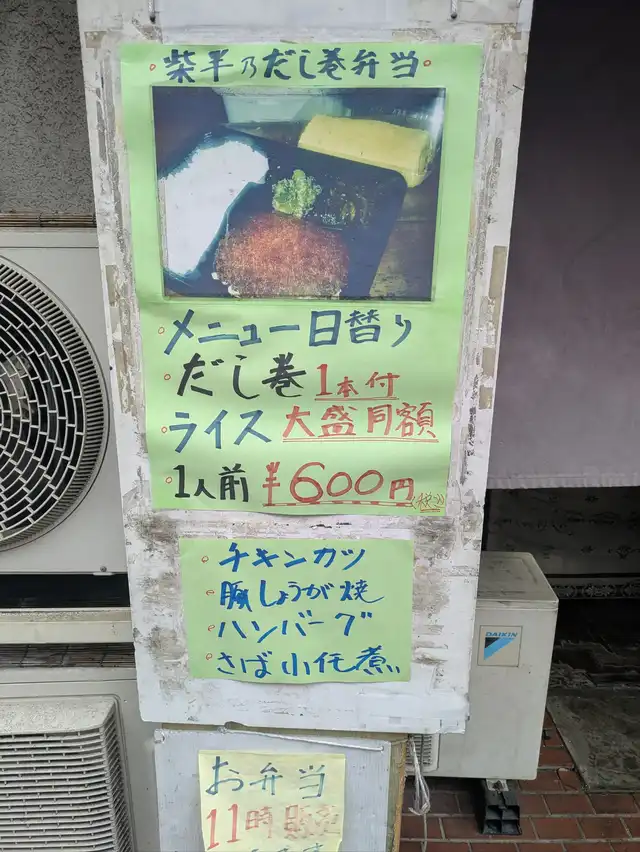 柴半乃だし巻弁当
メニュー日替り
だし巻 1本付
ライス 大盛同額
1人前 ¥600円(税込)
チキンカツ
豚しょうが焼
ハンバーグ
さば小伝煮
DAIKIN
お弁当
11時販売